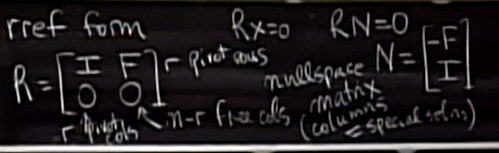 rref form Rx=0 RN=0
R = [I F; 0 0] r pivot rows
r pivot cols
n-r free cols
nullspace matrix N = [-F; I]
(columns = special solns)